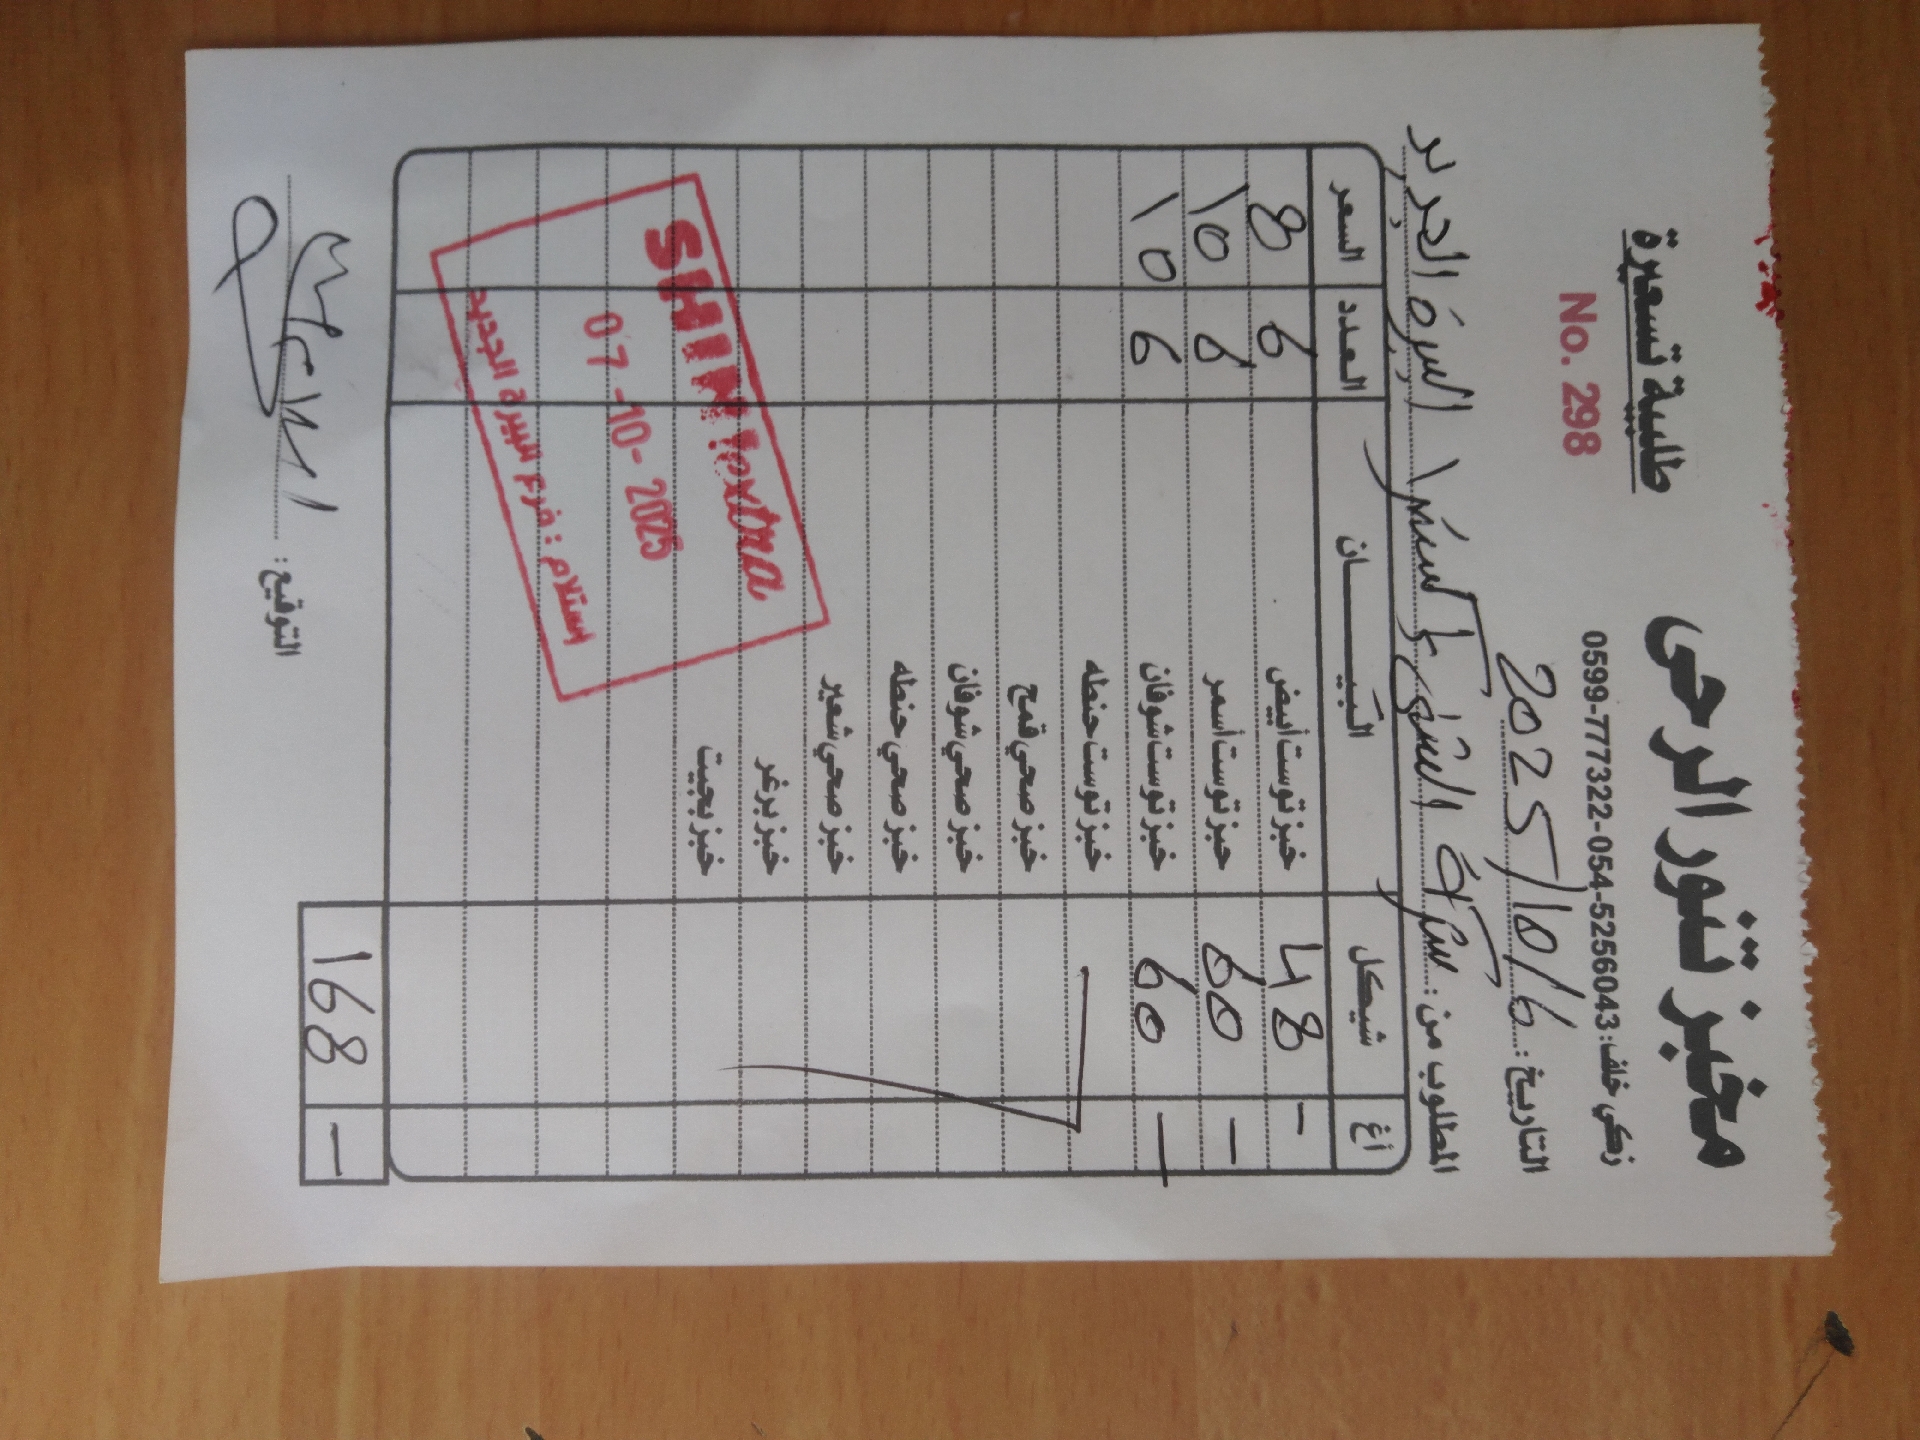 مخبز تنور الرحى
طلبية تسعيرة
زكي خلف: 0599-777322-054-5256043
No. 298
التاريخ: 2025/10/6
المطلوب من: شركة الشني اكسترا البيرة الجديد
أغ شيكل البيـــــان العدد السعر
- 48 خبز توست أبيض 6 8
- 60 خبز توست أسمر 6 10
- 60 خبز توست شوفان 6 10
خبز توست حنطه
خبز صحي قمح
خبز صحي شوفان
خبز صحي حنطه
خبز صحي شعير
خبز برغر
خبز بجيت
SHINI extra
07-10-2025
استلام: فرع البيرة الجديد
- 168
التوقيع: